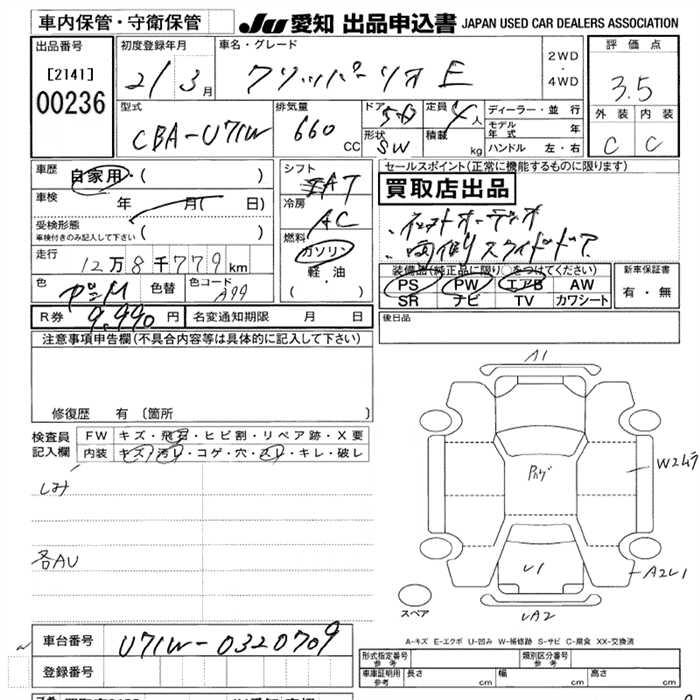 車内保管・守衛保管
JU 愛知 出品申込書 JAPAN USED CAR DEALERS ASSOCIATION
出品番号
[2141]
00236
初度登録年月
21/3月
車名・グレード
クリッパーリオ E
2WD
・
4WD
評価点
3.5
外装 内装
C C
型式
CBA-U71W
排気量
660 CC
ドア
5D
形状
SW
定員
4人
積載
kg
ディーラー・並行
モデル年式 年
ハンドル 左・右
車歴
自家用・( )
車検 年 月( 日)
受検形態
車検付きのみ記入して下さい ( )
走行
12万8千779km
色
パールM
色替
色コード
A99
R券 9,990円
名変通知期限 月 日
シフト
AT
冷房
AC
燃料
ガソリン
軽・油
( )
セールスポイント(正常に機能するものに限ります)
買取店出品
・両側スライドドア
装備品(純正品に限り○をつけてください)
PS PW エアB AW
SR ナビ TV カワシート
新車保証書
有・無
後日品
注意事項申告欄(不具合内容等は具体的に記入して下さい)
修復歴 有 〔箇所 〕
検査員記入欄
FW キズ・飛石・ヒビ割・リペア跡・X要
内装 キズ・汚レ・コゲ・穴・スレ・キレ・破レ
シミ
各AU
A1
W2ムラ
U1
A2U1
UA2
スペア
A-キズ E-エクボ U-凹み W-補修跡 S-サビ C-腐食 XX-交換済
車台番号 U71W-0320709
登録番号
形式指定番号 参考
類別区分番号 参考
車庫証明用 参考 長さ 幅 高さ
cm cm cm